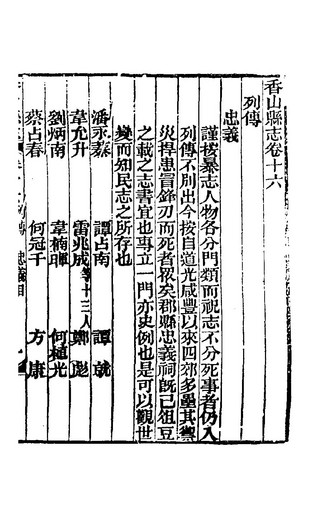 香山縣志卷十六
列傳
忠義
謹按暴志人物各分門類而祝志不分死事者仍入
列傳不別出今按自道光咸豐以來四郊多壘其禦
災捍患冒鋒刃而死者眾矣郡縣忠義祠既已俎豆
之載之志書宜也專立一門亦史例也是可以觀世
變而知民志之所存也
潘永泰 譚占南 譚 就
韋允升 雷兆成等十三人 鄭 彪
劉炳南 韋楠暉 何植光
蔡占春 何冠千 方 康